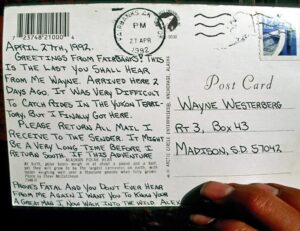 7 23748 21000 4
FAIRBANKS AK
PM
27 APR
1992
APRIL 27th, 1992.
GREETINGS FROM FAIRBANKS! THIS
IS THE LAST YOU SHALL HEAR
FROM ME WAYNE. ARRIVED HERE 2
DAYS AGO. IT WAS VERY DIFFICULT
TO CATCH RIDES IN THE YUKON TERRI-
TORY. BUT I FINALLY GOT HERE.
PLEASE RETURN ALL MAIL I
RECEIVE TO THE SENDER. IT MIGHT
BE A VERY LONG TIME BEFORE I
RETURN SOUTH. IF THIS ADVENTURE
ALASKAN POLAR BEAR
PROVES FATAL AND YOU DON'T EVER HEAR
FROM ME AGAIN I WANT YOU TO KNOW YOUR
A GREAT MAN. I NOW WALK INTO THE WILD. ALEX
Post Card
WAYNE WESTERBERG
RT 3, BOX 43
MADISON, S.D. 57042